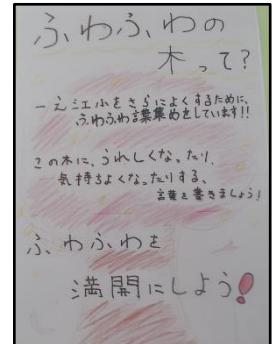 ふわふわの
木って?
一之江小をさらによくするために、
ふわふわ言葉集めをしています!!
この木に、うれしくなったり、
気持ちよくなったりする、
言葉を書きましょう!
ふわふわを
満開にしよう!